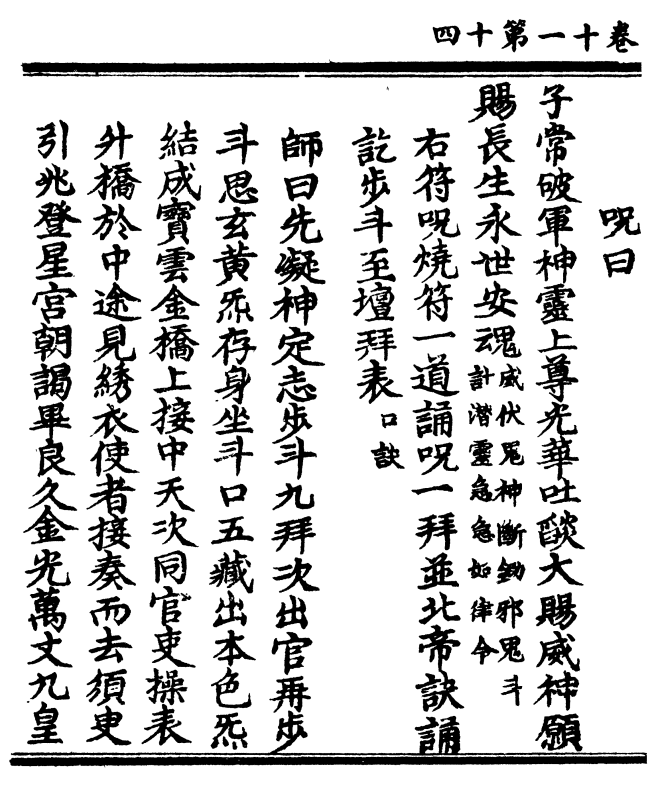 卷十一第十四
呪曰
子常破軍神靈上尊光華吐燄大賜威神願
賜長生永世安魂威伏鬼神斷釖邪鬼斗
計潛靈急急如律令
右符呪燒符一道誦呪一拜並北帝訣誦
訖步斗至壇拜表口訣
師曰先凝神定志步斗九拜次出官再步
斗思玄黃炁存身坐斗口五藏出本色炁
結成寶雲金橋上接中天次同官吏操表
升橋於中途見綉衣使者接奏而去須臾
引兆登星宮朝謁畢良久金光萬丈九皇